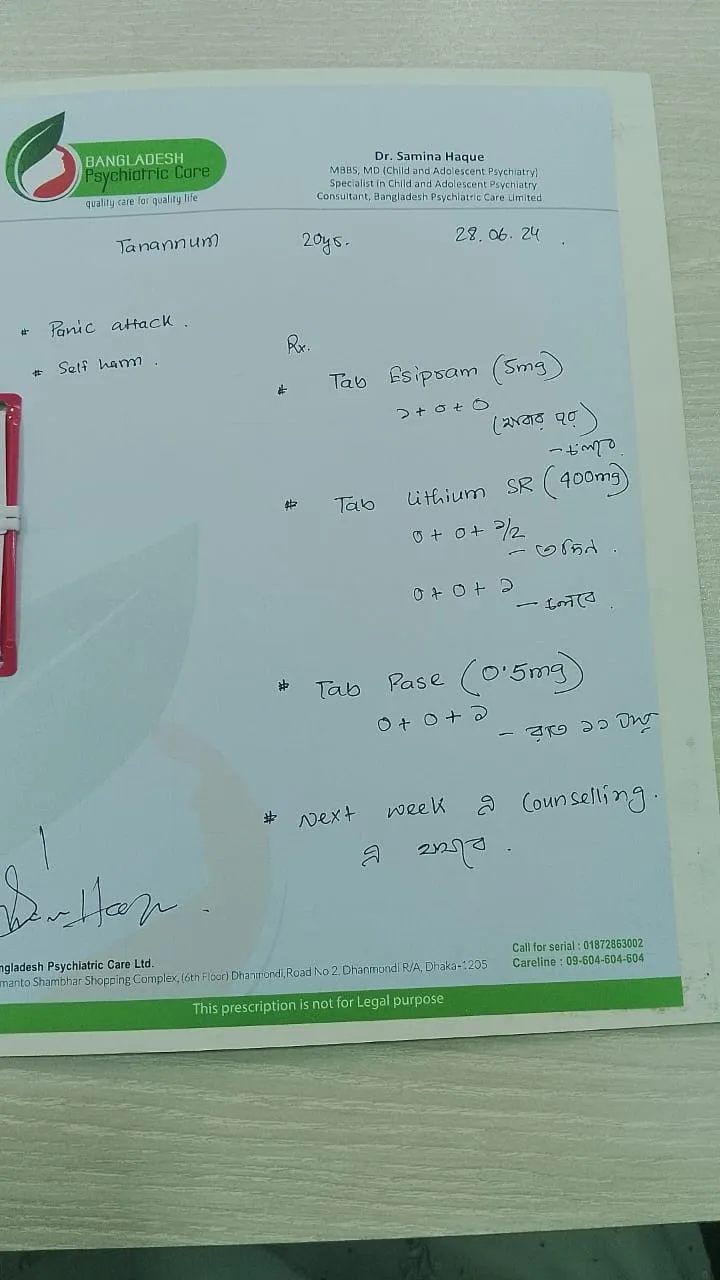 BANGLADESH
Psychiatric Care
quality care for quality life
Dr. Samina Haque
MBBS, MD (Child and Adolescent Psychiatry)
Specialist in Child and Adolescent Psychiatry
Consultant, Bangladesh Psychiatric Care Limited
Tanannum 20ys. 28.06.24
# Panic attack.
# Self harm.
Rx.
# Tab Esipram (5mg)
১+০+০
# Tab Lithium SR (400mg)
০+০+১/২
০+০+১
– চলবে.
# Tab Pase (0.5mg)
০+০+১
– রাত ১১
# Next week এ Counselling.
এ
ngladesh Psychiatric Care Ltd.
manto Shambhar Shopping Complex, (6th Floor) Dhanmondi, Road No 2, Dhanmondi R/A, Dhaka-1205
Call for serial : 01872863002
Careline : 09-604-604-604
This prescription is not for Legal purpose